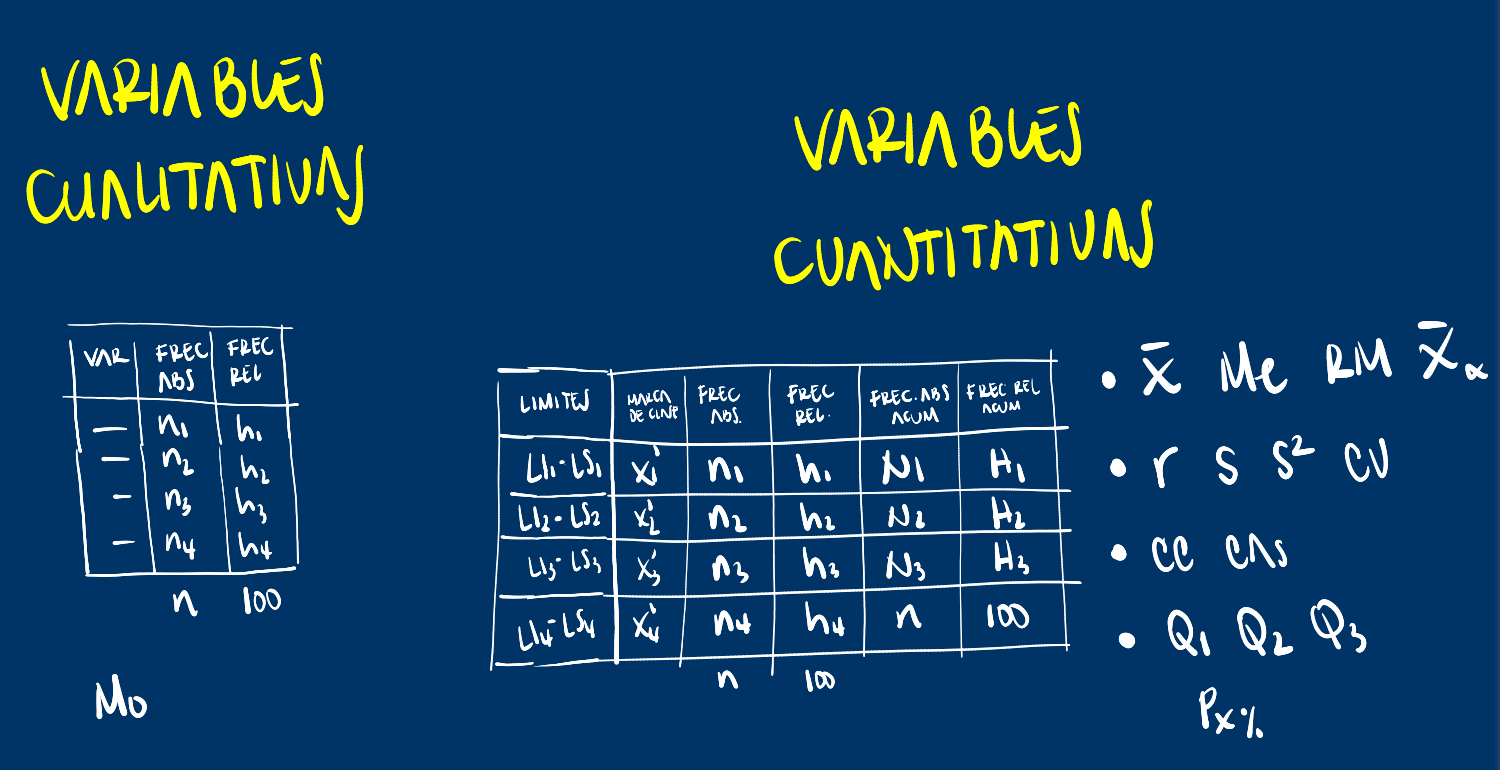 VARIABLES
CUALITATIVAS
VAR FREC ABS FREC REL
— n₁ h₁
— n₂ h₂
- n₃ h₃
— n₄ h₄
n 100
Mo
VARIABLES
CUANTITATIVAS
LIMITES MARCA DE CLASE FREC ABS. FREC REL. FREC. ABS ACUM FREC REL ACUM
LI₁-LS₁ x₁' n₁ h₁ N₁ H₁
LI₂-LS₂ x₂' n₂ h₂ N₂ H₂
LI₃-LS₃ x₃' n₃ h₃ N₃ H₃
LI₄-LS₄ x₄' n₄ h₄ n 100
n 100
• x̄ Me RM x̄α
• r s s² CV
• CC CAs
• Q₁ Q₂ Q₃
Px%